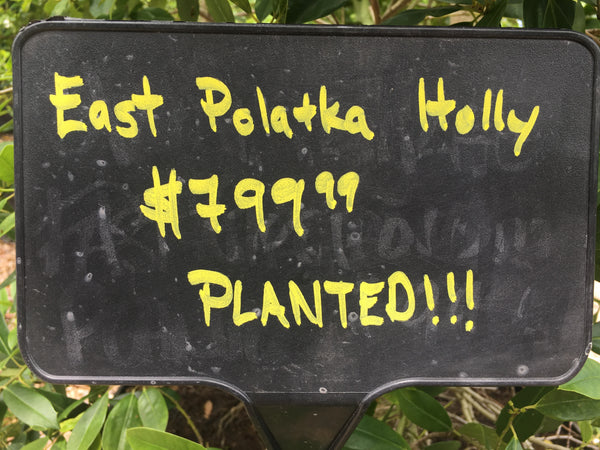 East Polatka Holly
$799.99
PLANTED!!!